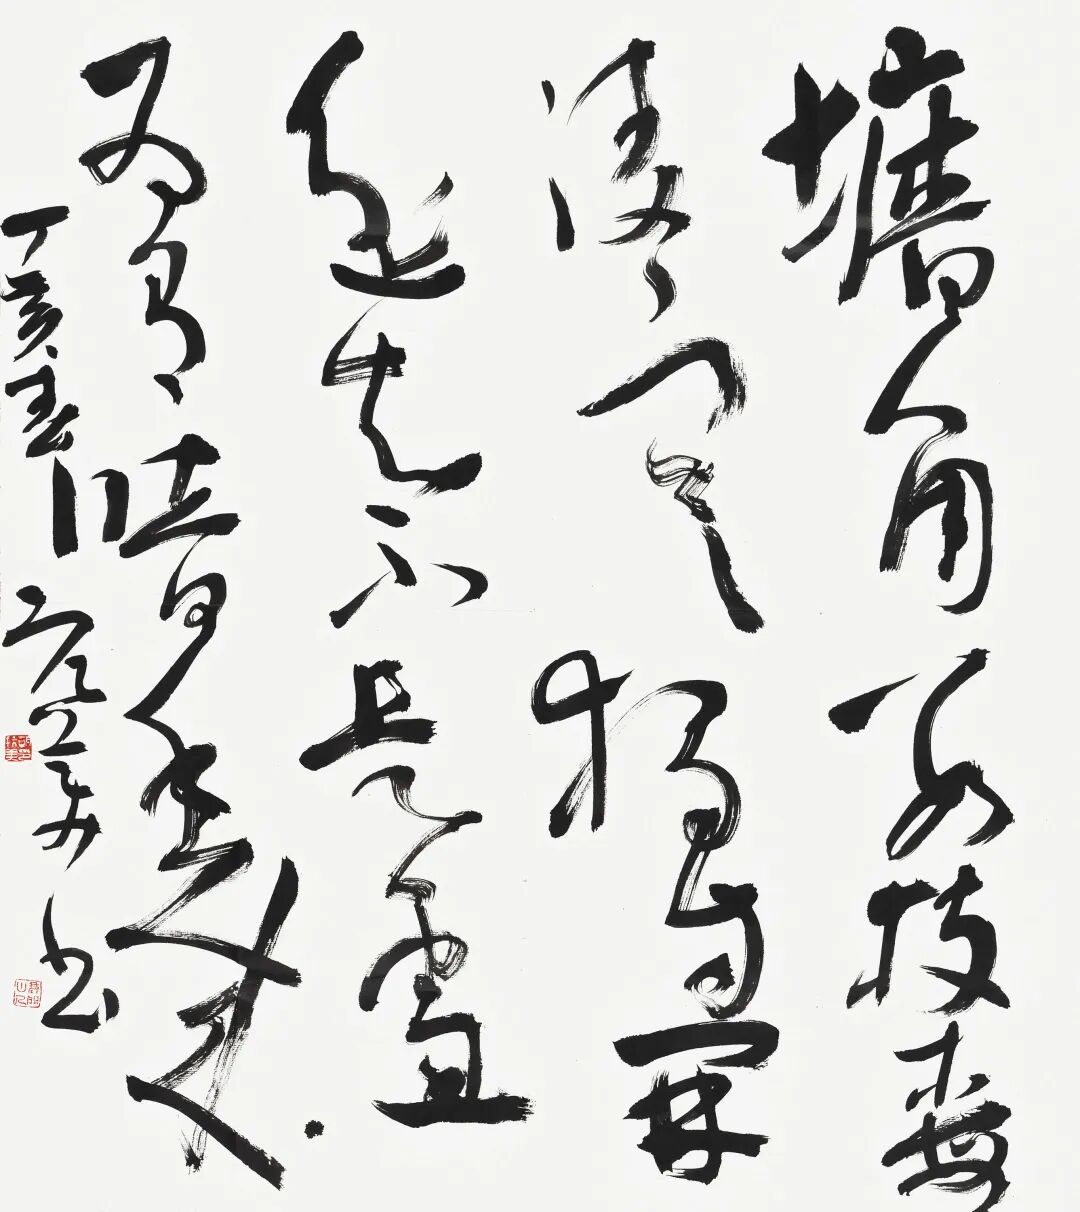 墙角数枝梅
凌寒独自開
遥知不是雪
为有暗香来
丁亥春 书